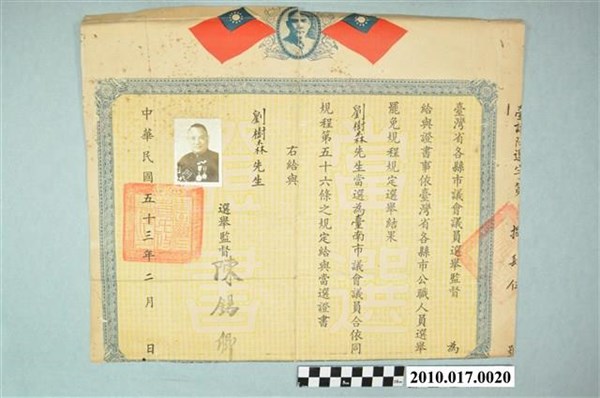 臺灣省各縣市議會議員選舉監督 為
給與證書事依臺灣省各縣市公職人員選舉
罷免規程規定選舉結果
劉樹森先生當選為臺南市議會議員合依同
規程第五十六條之規定給與當選證書
右給與
劉樹森先生
選舉監督 陳錫卿
中華民國五十三年二月 日
2010.017.0020